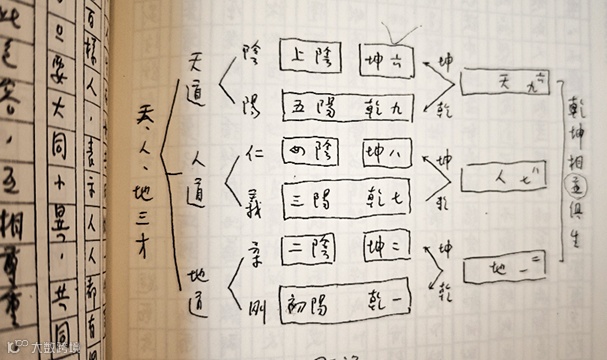 天、人、地三才
天道
人道
地道
陰
陽
仁
義
柔
剛
上陰 坤六
五陽 乾九
四陰 坤八
三陽 乾七
二陰 坤二
初陽 乾一
坤
乾
坤
乾
坤
乾
天 九六
人 七八
地 一二
乾坤相並俱生
百樣人,表示人人都有個
只要大同小異,共同
此包容,互相尊重
大数跨境